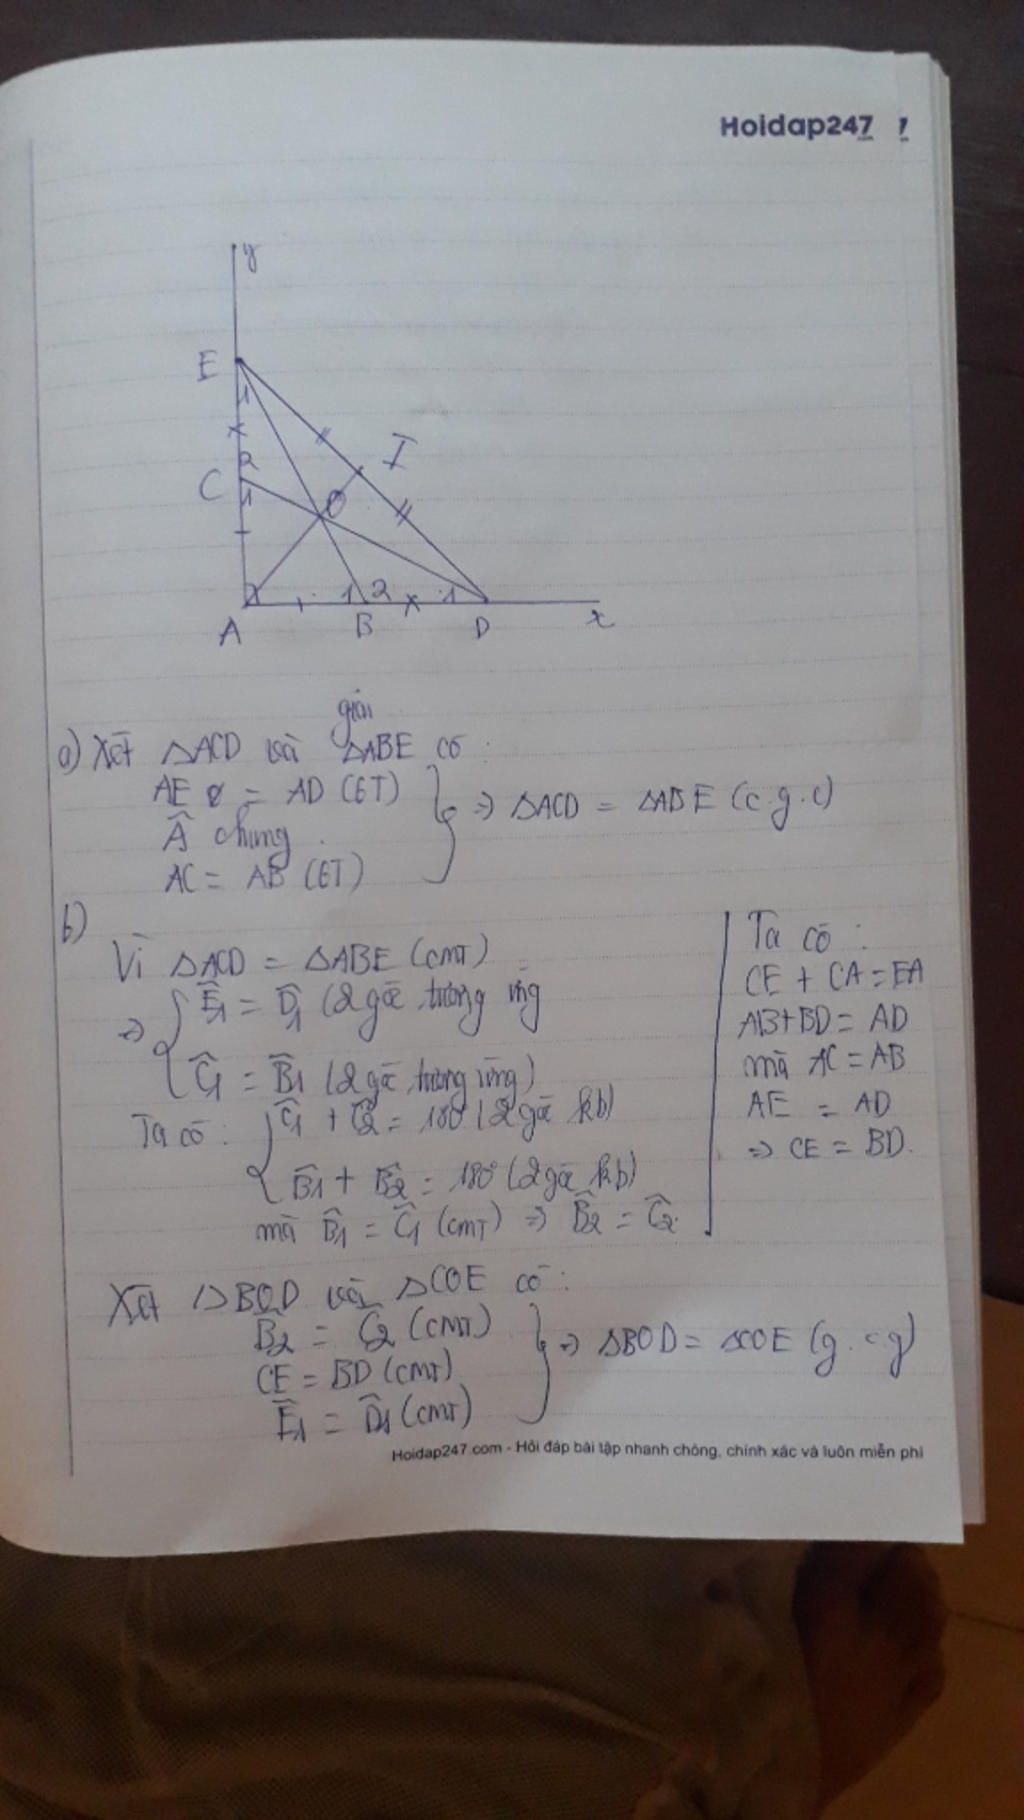 Hoidap247
y
E
1
I
2
C
1
O
1 2 1
A B D x
giải
a) Xét ΔACD và ΔABE có :
AE = AD (GT)
Â chung
AC = AB (GT)
=> ΔACD = ΔABE (c.g.c)
b)
Vì ΔACD = ΔABE (cmt)
=> Ê1 = D̂1 (2 góc tương ứng
Ĉ1 = B̂1 (2 góc tương ứng)
Ta có : Ĉ1 + Ĉ2 = 180° (2 góc kb)
B̂1 + B̂2 = 180° (2 góc kb)
mà B̂1 = Ĉ1 (cmt) => B̂2 = Ĉ2.
Ta có :
CE + CA = EA
AB + BD = AD
mà AC = AB
AE = AD
=> CE = BD.
Xét ΔBOD và ΔCOE có :
B̂2 = Ĉ2 (cmt)
CE = BD (cmt)
Ê1 = D̂1 (cmt)
=> ΔBOD = ΔCOE (g.c.g)
Hoidap247.com - Hỏi đáp bài tập nhanh chóng, chính xác và luôn miễn phí